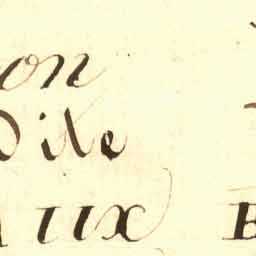 on
dite
AUX E